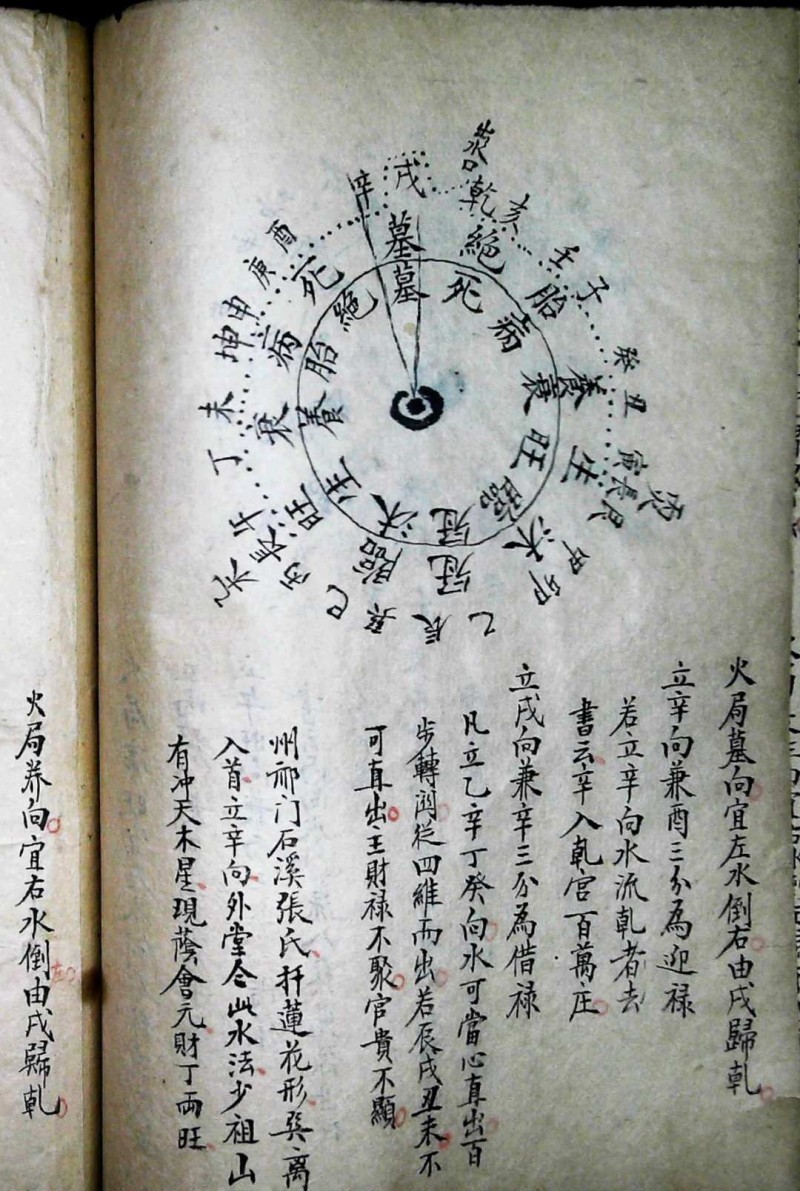 火局墓向宜左水倒右由戌歸乾
立辛向兼酉三分為迎禄
若立辛向水流乾者去
書云辛入乾宮百萬庄
立戌向兼辛三分為借禄
凡立乙辛丁癸向水可當心直出百
步轉闗從四維而出若辰戌丑未不
可直出主財禄不聚官貴不顯
州祁门石溪張氏扦蓮花形巽離
入首立辛向外堂合此水法少祖山
有冲天木星現蔭會元財丁両旺
火局养向宜右水倒左由戌歸乾
辛
戌
乾
亥
壬
子
癸
丑
寅
長
艮
甲
卯
乙
辰
巽
巳
丙
長
午
丁
未
坤
申
庚
酉
墓
絕
胎
養
生
沐
冠
臨
旺
衰
病
死
墓
死
病
衰
旺
臨
冠
沐
生
養
胎
絕